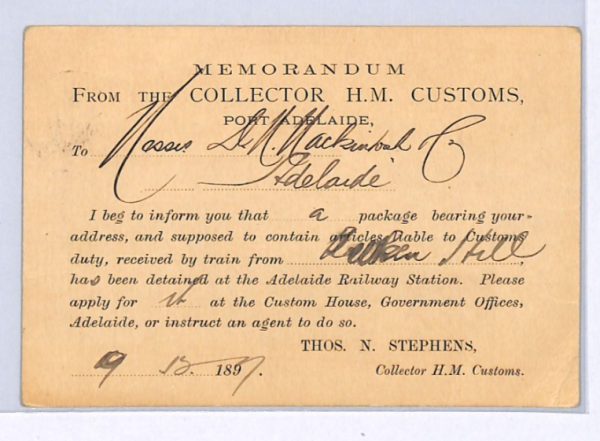 MEMORANDUM
FROM THE COLLECTOR H.M. CUSTOMS,
PORT ADELAIDE,
To Messrs D. & W. Mackintosh & Co
Adelaide
I beg to inform you that a package bearing your
address, and supposed to contain articles liable to Customs
duty, received by train from Broken Hill,
has been detained at the Adelaide Railway Station. Please
apply for it at the Custom House, Government Offices,
Adelaide, or instruct an agent to do so.
THOS. N. STEPHENS,
9 12. 1897. Collector H.M. Customs.